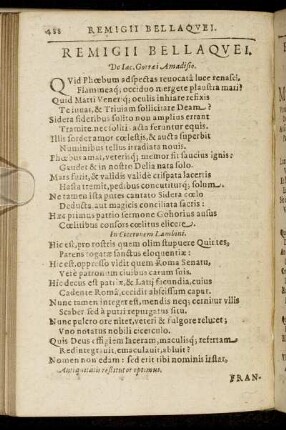 488 REMIGII BELLAQVEI.
REMIGII BELLAQVEI.
De Iac. Gorræi Amadisio.
QVid Phœbum adspectas reuocatâ luce renasci,
Flammeaq; occiduo mergere plaustra mari?
Quid Marti Veneriq; oculis inhiare refixis
Te iuuat, & Triuiam sollicitare Deam?
Sidera sideribus positò non amplius errant
Tramite, nec soliti acta feruntur equis.
Illis sordet amor cœlestis, & austa superbit
Numinibus tellus irradiata nouis.
Phœbus amat, veteriq; memor fit saucius ignis:
Gaudet & in nostro Delia nata solo.
Mars furit, & validis validè crispata lacertis
Hasta tremit, pedibus concutiturq; solum.
Ne tamen ista putes cantato Sidera cœlo
Deducta, aut magicis conciliata sacris:
Hæc primus patrio sermone Gohorius ausus
Cœlitibus consors cœlitus elicere.
In Ciceronem Lambini.
Hic est, pro rostris quem olim stupuere Quirites,
Parens togatæ sanctus eloquentiæ:
Hic est, oppresso vidit quem Roma Senatu,
Vetè patronum ciuibus carum suis.
Hic decus est patriæ, & Latij facundia, cuius
Cadente Româ, cecidit abscissum caput.
Nunc tamen integrat est, mendis neq; cernitur vllis
Scaber sed à putri repurgatus situ.
Nunc pulcro ore nitet, veteri & fulgore relucet;
Vno notatus nobili cicerculo.
Quis Deus effigiem laceram, maculisq; refertam
Redintegrauit, emaculauit, abluit?
Nomen non edam: sed erit tibi nominis instar,
Antiquitatis restitutor optimus.
FRAN-